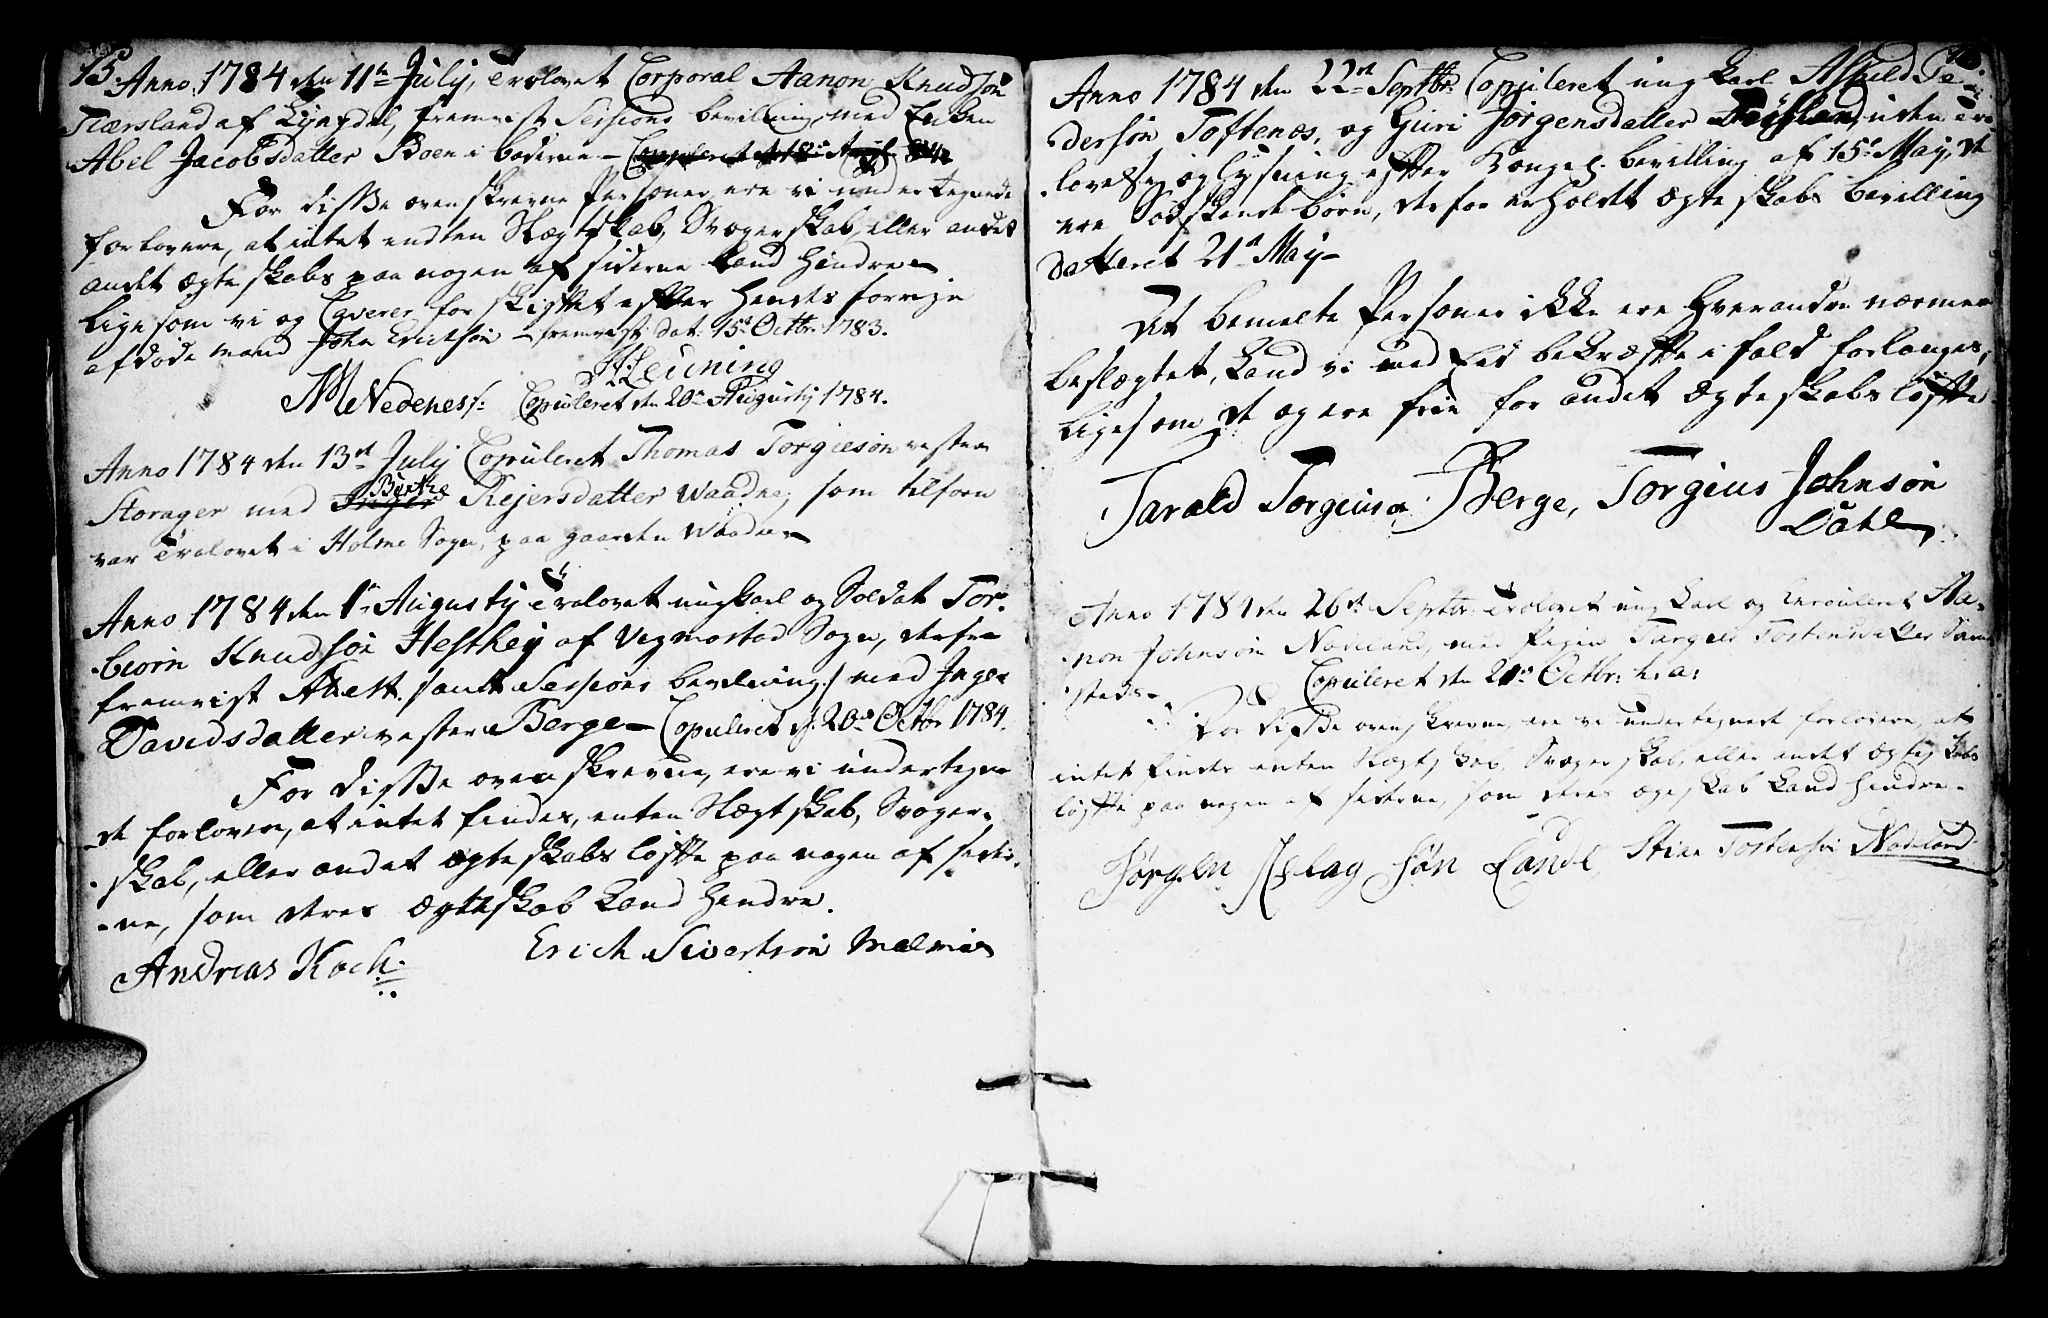 15.
Anno 1784 den 11te July, Trolovet Corporal Aanon Knudsøn
Tiærsland af Lyngdal, fremvist Sessions bevilling, med Encken
Abel Jacobsdatter Boen i boderne — Copuleret
For disse ovenskrevne Personer, ere vi undertegnede
forlovere, at intet endten Slægtskab, Svogerskab, eller andet
andet Ægteskabs paa nogen af siderne kand hindre —
Ligesom vi og Caverer for skiftet efter hendes forrige
afdøde mand John Erichsøn — fremvist dat. 15de Octbr: 1783.
H: Leuning
M Nedenes /: Copuleret den 20de Augusty 1784.
Anno 1784 den 13de July Copuleret Thomas Torgiesøn vestre
Storager med Inger Berthe Rejersdatter Waadne, som tilforn
var Trolovet i Holme Sogn, paa gaarden Waadne —
Anno 1784 den 1te Augusty Trolovet ungkarl og Soldat Tor-
biorn Knudsøn Hesthey af Vigmostad Sogn, derfra
fremvist Attest samt Sessions bevilling / med Inger
Davidsdatter vestre Berge — Copuleret d: 20de Octbr 1784.
For disse ovenskrevne, ere vi undertegne-
de forlovere, at intet findes, enten Slægtskab, Svoger-
skab, eller andet ægteskabs løfte paa nogen af sider-
ne, som deres Ægteskab kand hindre.
Andreas Koch. Erich Sivertsøn Mælvier
Anno 1784 den 22de Septbr: Copuleret ungkarl Aschild Pe-
dersøn Toftenæs, og Guri Jørgensdatter uden Tro-
lovelse og lysning efter Kongel. bevilling af 15de May, de
ere Sødskende børn, derfor erholdet Ægteskabs bevilling
datteret 21de May —
Det bemelte Personer ikke ere hverandre nærmere
beslægtet, kand vi med Eed bekræfte i fald forlanges,
Ligesom de og ere frie for andet Ægteskabs løfte.
Tarald Torgeusøn Berge, Torgius Johnsøn
Dahl
Anno 1784 den 26de Septbr: Trolovet ungkarl og Enrouleret Aa-
non Johnsøn Nodeland, med Pigen Targier Tostensdatter Samme-
steds — Copuleret den 21de Octbr: h: a:
For disse ovenskrevne, ere vi undertegnede forlovere, at
intet findes enten Slægtskab, Svogerskab, eller andet Ægteskabs
løfte paa nogen af siderne, som deres ægteskab kand hindre —
Jørgen Aslag Søn Lande Stien Tostensøn Nodeland